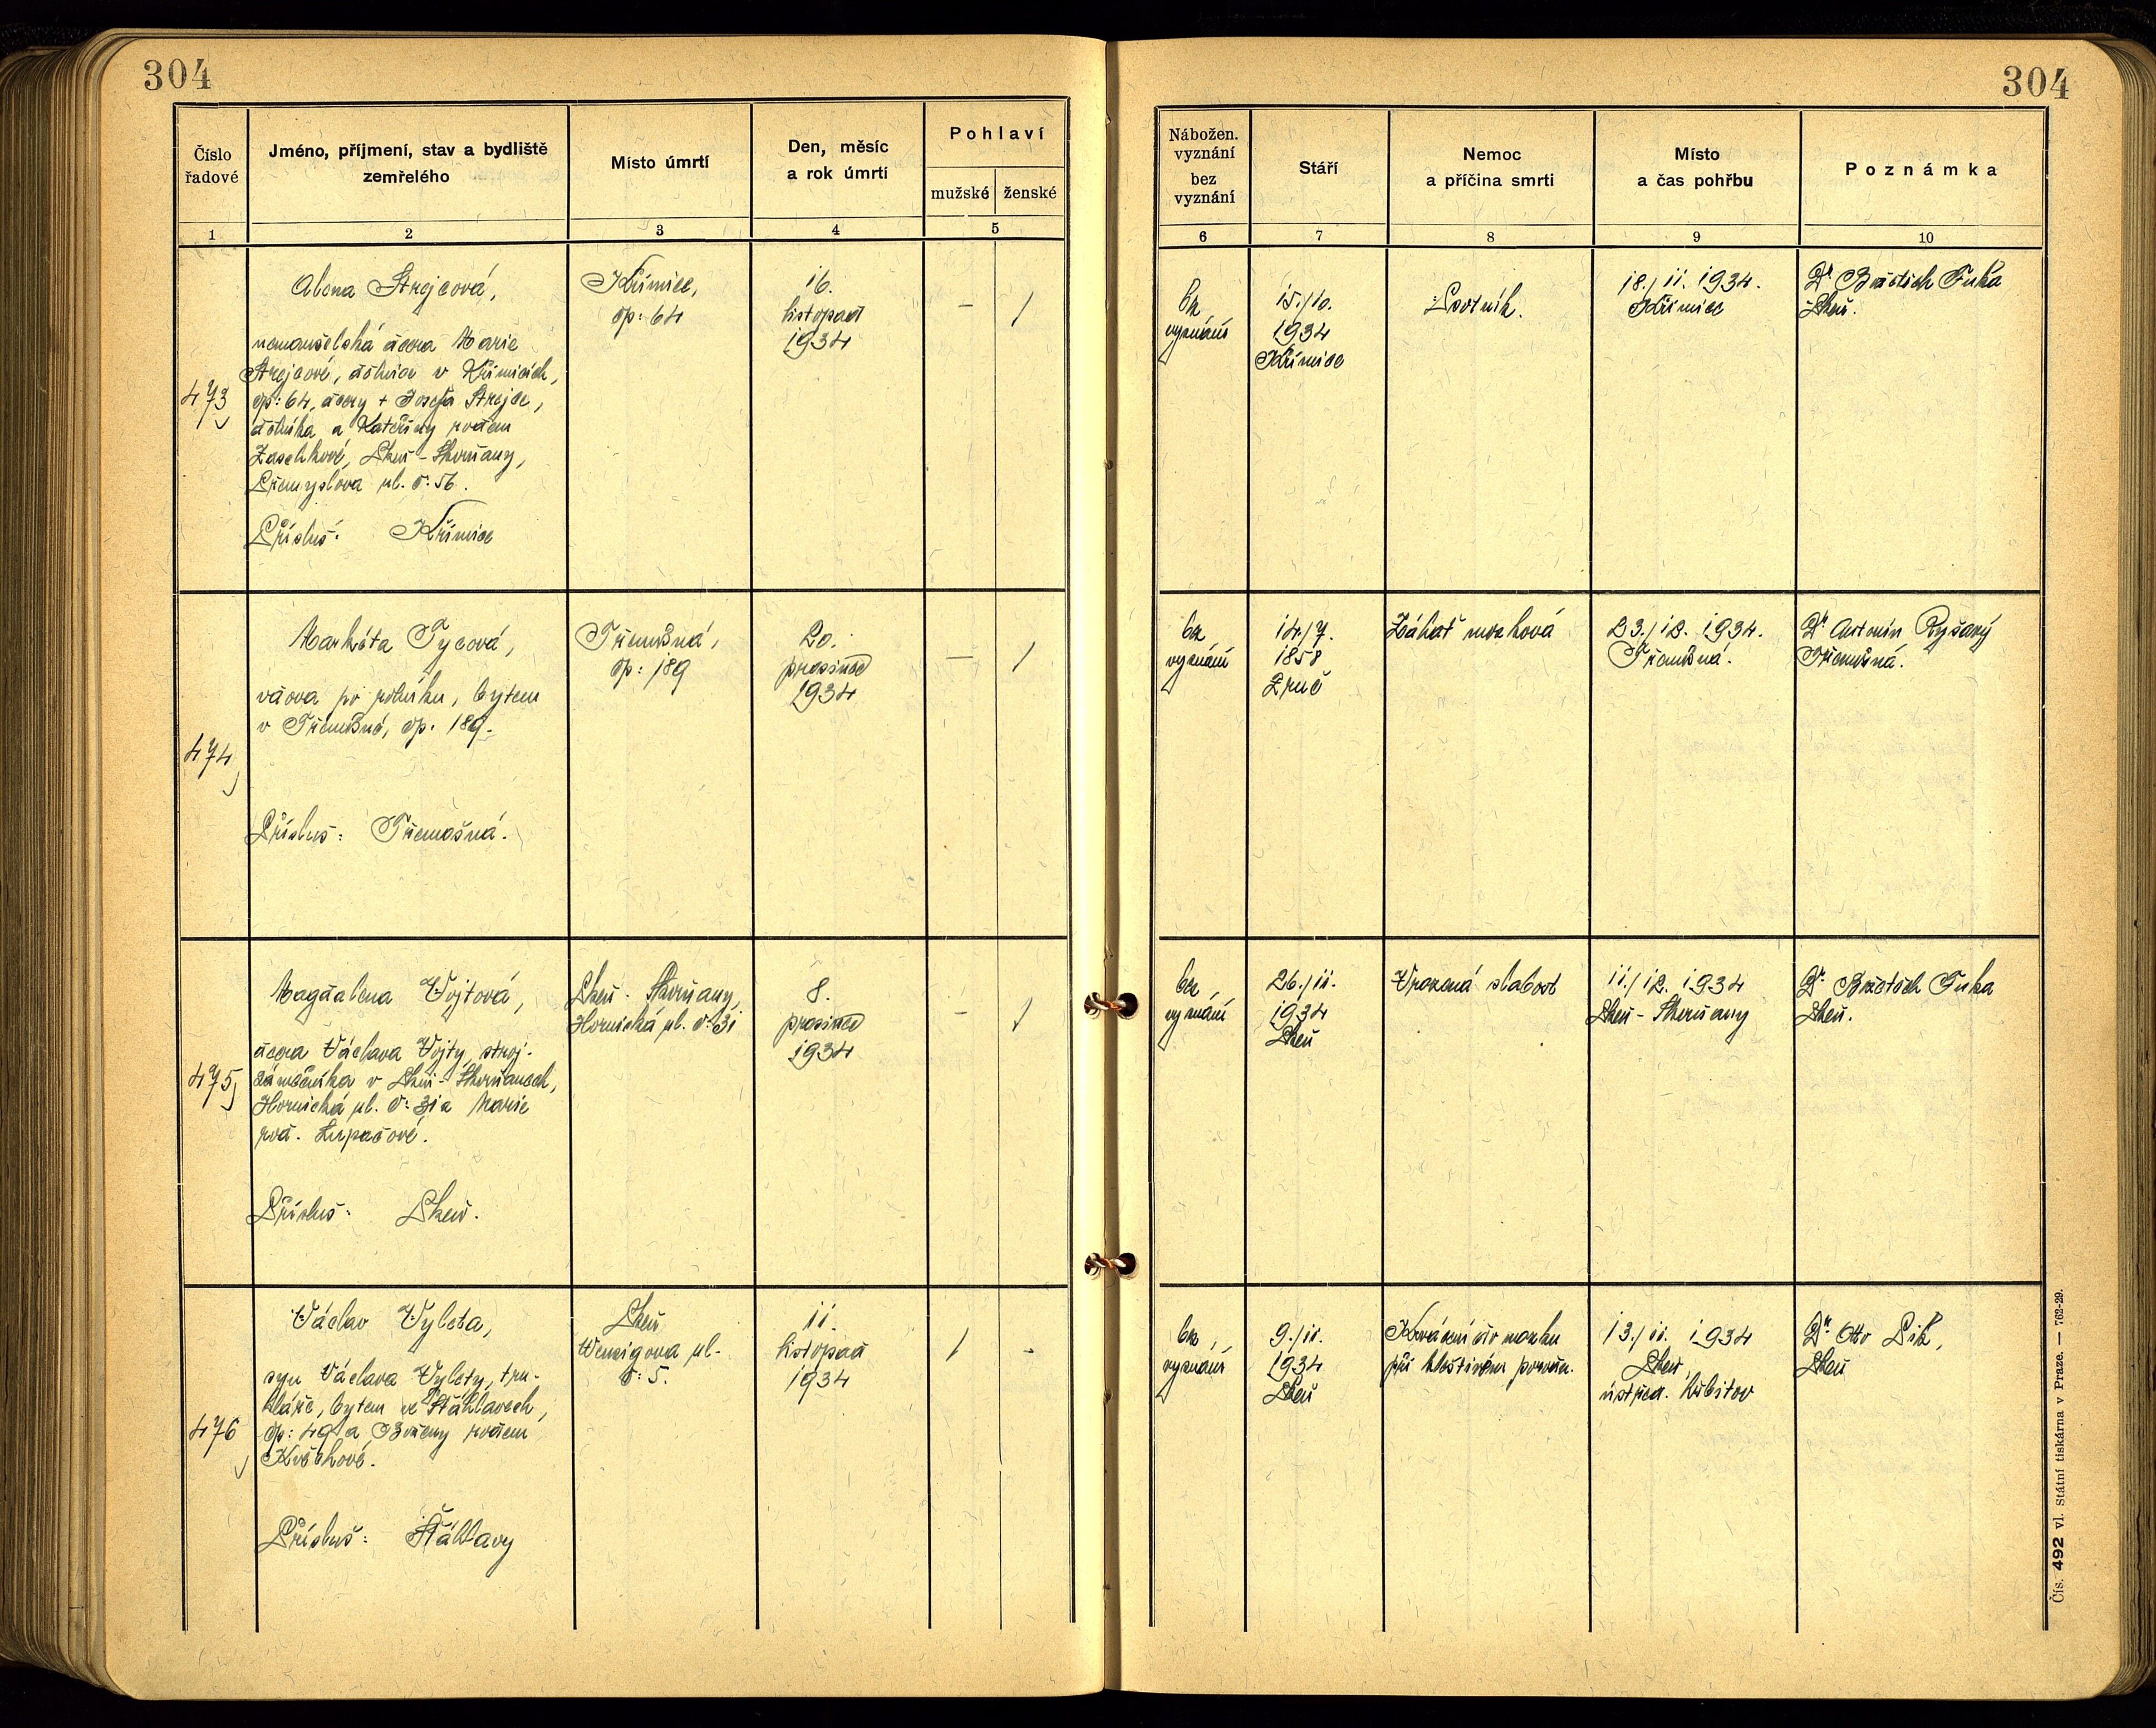 304
304
Číslo
řadové
Jméno, příjmení, stav a bydliště
zemřelého
Místo úmrtí
Den, měsíc
a rok úmrtí
Pohlaví
mužské
ženské
1
2
3
4
5
Nábožen.
vyznání
bez
vyznání
Stáří
Nemoc
a příčina smrti
Místo
a čas pohřbu
Poznámka
6
7
8
9
10
473
Alena Strejcová,
nemanželská dcera Marie
Strejcové, dělnice v Křimicích,
čp: 64, dcery + Josefa Strejce,
dělníka a Kateřiny rozen
Plzeň - Skvrňany,
Přemyslova ul. č: 56.
Přísluš: Křimice
Křimice,
čp: 64
16.
listopad
1934
–
/
bez
vyznání
15./10.
1934
Křimice
Psotník.
18./11. 1934.
Křimice
Dr Bedřich Fuka
Plzeň.
474
Markéta Tycová,
vdova po rolníku, bytem
v Třemošné, čp. 189.
Přísluš: Třemošná.
Třemošná,
čp: 189
20.
prosinec
1934
–
/
bez
vyznání
14./7.
1858
Zruč
Záhať mozková
23./12. 1934.
Třemošná.
Dr Antonín Ryšavý
Třemošná.
475
Magdalena Vojtová,
dcera Václava Vojty, stroj.
zámečníka v Plzni-Skvrňanech,
Hornická ul. č: 31 a Marie
roz. Lupačové.
Přísluš: Plzeň.
Plzeň - Skvrňany,
Hornická ul. č: 31
8.
prosinec
1934
-
/
bez
vyznání
26./11.
1934
Plzeň
Vrozená slabost
11./12. 1934
Plzeň - Skvrňany
Dr Bedřich Fuka
Plzeň.
476
Václav Vyleta,
syn Václava Vylety, tru-
hláře, bytem ve Šťáhlavech,
čp: 49 a Boženy rozen
Přísluš: Šťáhlavy
Plzeň
Wenzigova ul.
č: 5.
11.
listopad
1934
/
-
bez
vyznání
9./11.
1934
Plzeň
Krvácení do mozku
při klešťovém porodu.
13./11. 1934
Plzeň,
ústřed. hřbitov
Dr. Otto Pik,
Plzeň
Čís. 492 vl. Státní tiskárna v Praze. — 762-29.